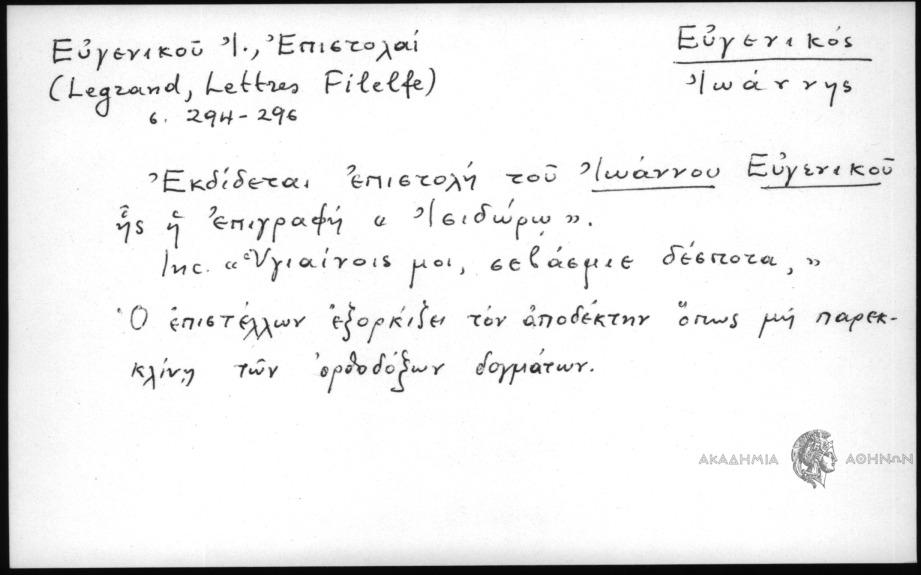 Εὐγενικοῦ Ἰ., Ἐπιστολαί
(Legrand, Lettres Filelfe)
σ. 294-296
Εὐγενικός
Ἰωάννης
Ἐκδίδεται ἐπιστολή τοῦ Ἰωάννου Εὐγενικοῦ
ἧς ἡ ἐπιγραφή « Ἰσιδώρῳ ».
Inc. « Ὑγιαίνοις μοι, σεβάσμιε δέσποτα, »
Ὁ ἐπιστέλλων ἐξορκίζει τόν ἀποδέκτην ὅπως μή παρεκ-
κλίνῃ τῶν ὀρθοδόξων δογμάτων.
ΑΚΑΔΗΜΙΑ ΑΘΗΝΩΝ